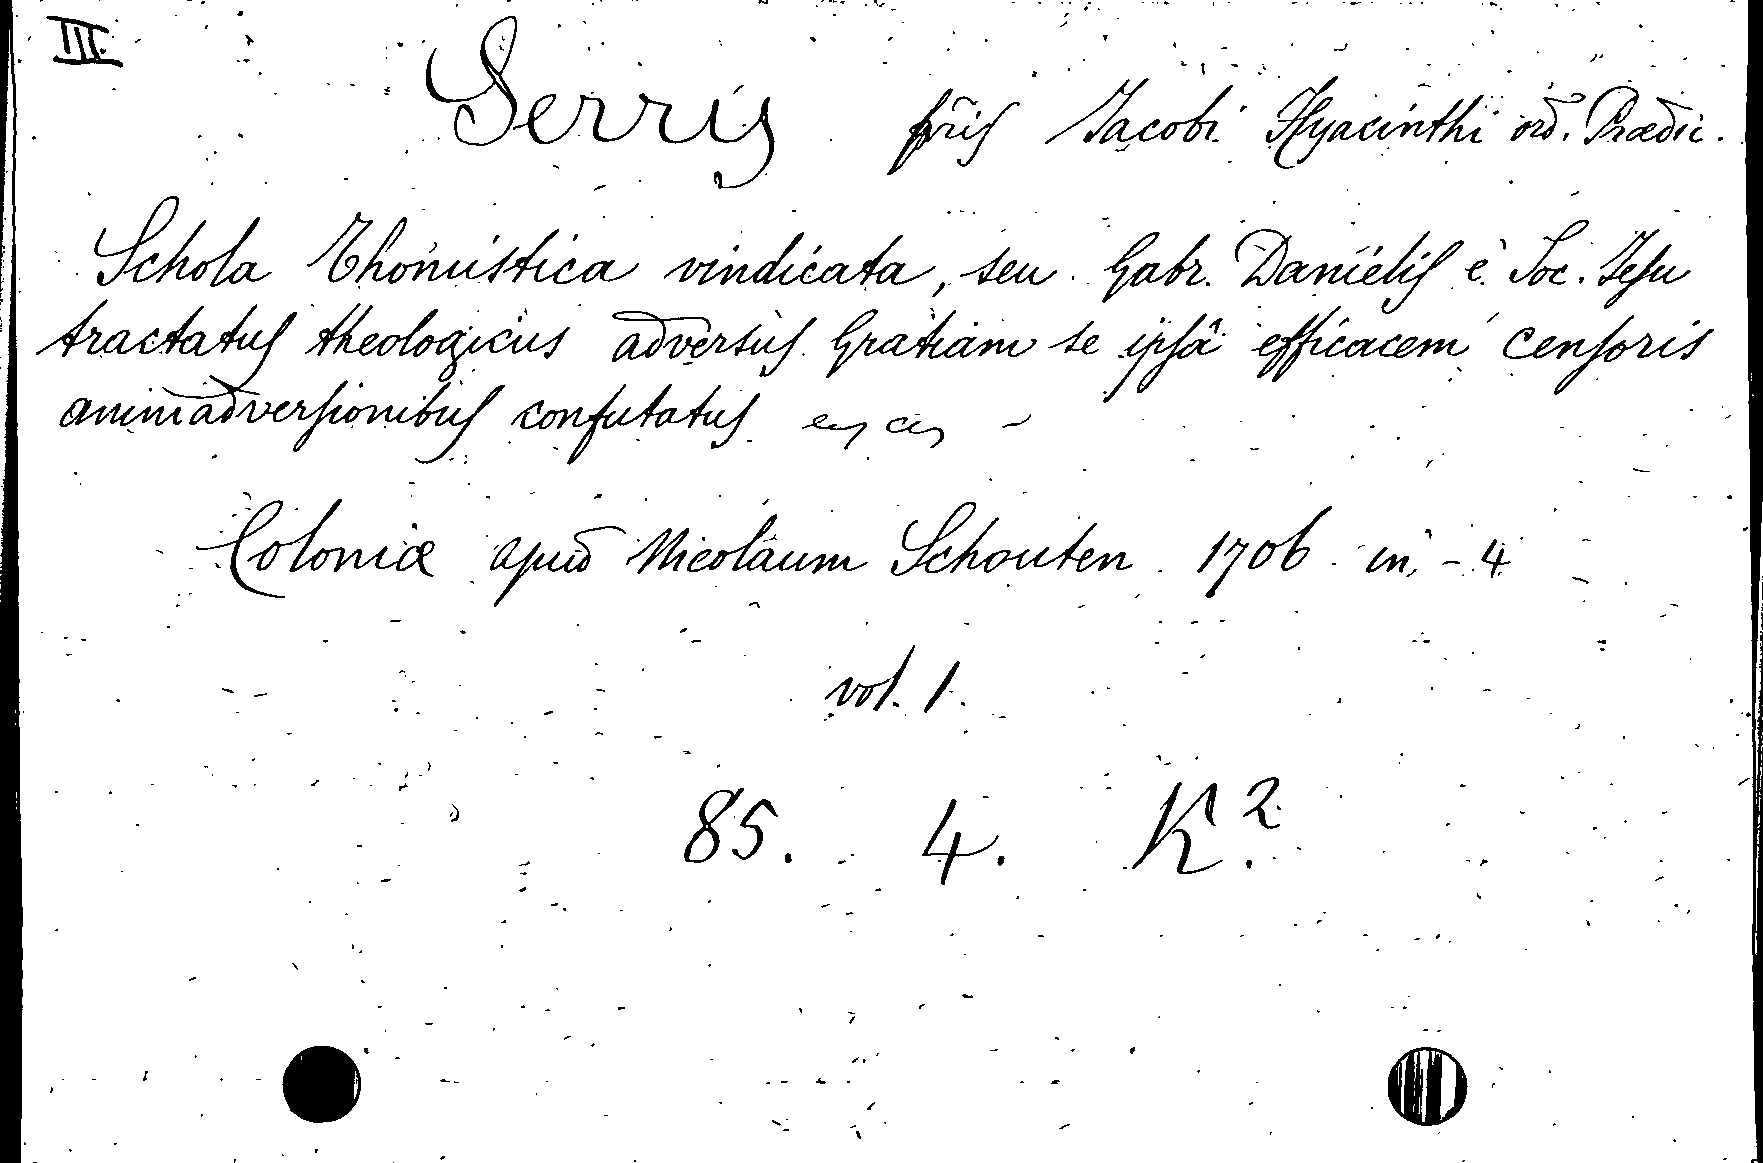 III.
Serrij fr̃is Jacobi Hyacinthi ord. Prædic.
Schola Thomistica vindicata, seu Gabr. Danielis è Soc. Jesu
tractatus theologicus adversus Gratiam se ipsâ efficacem censoris
animadversionibus confutatus
Coloniæ apud Nicolaum Schouten 1706 in-4
vol. 1.
85. 4. K².